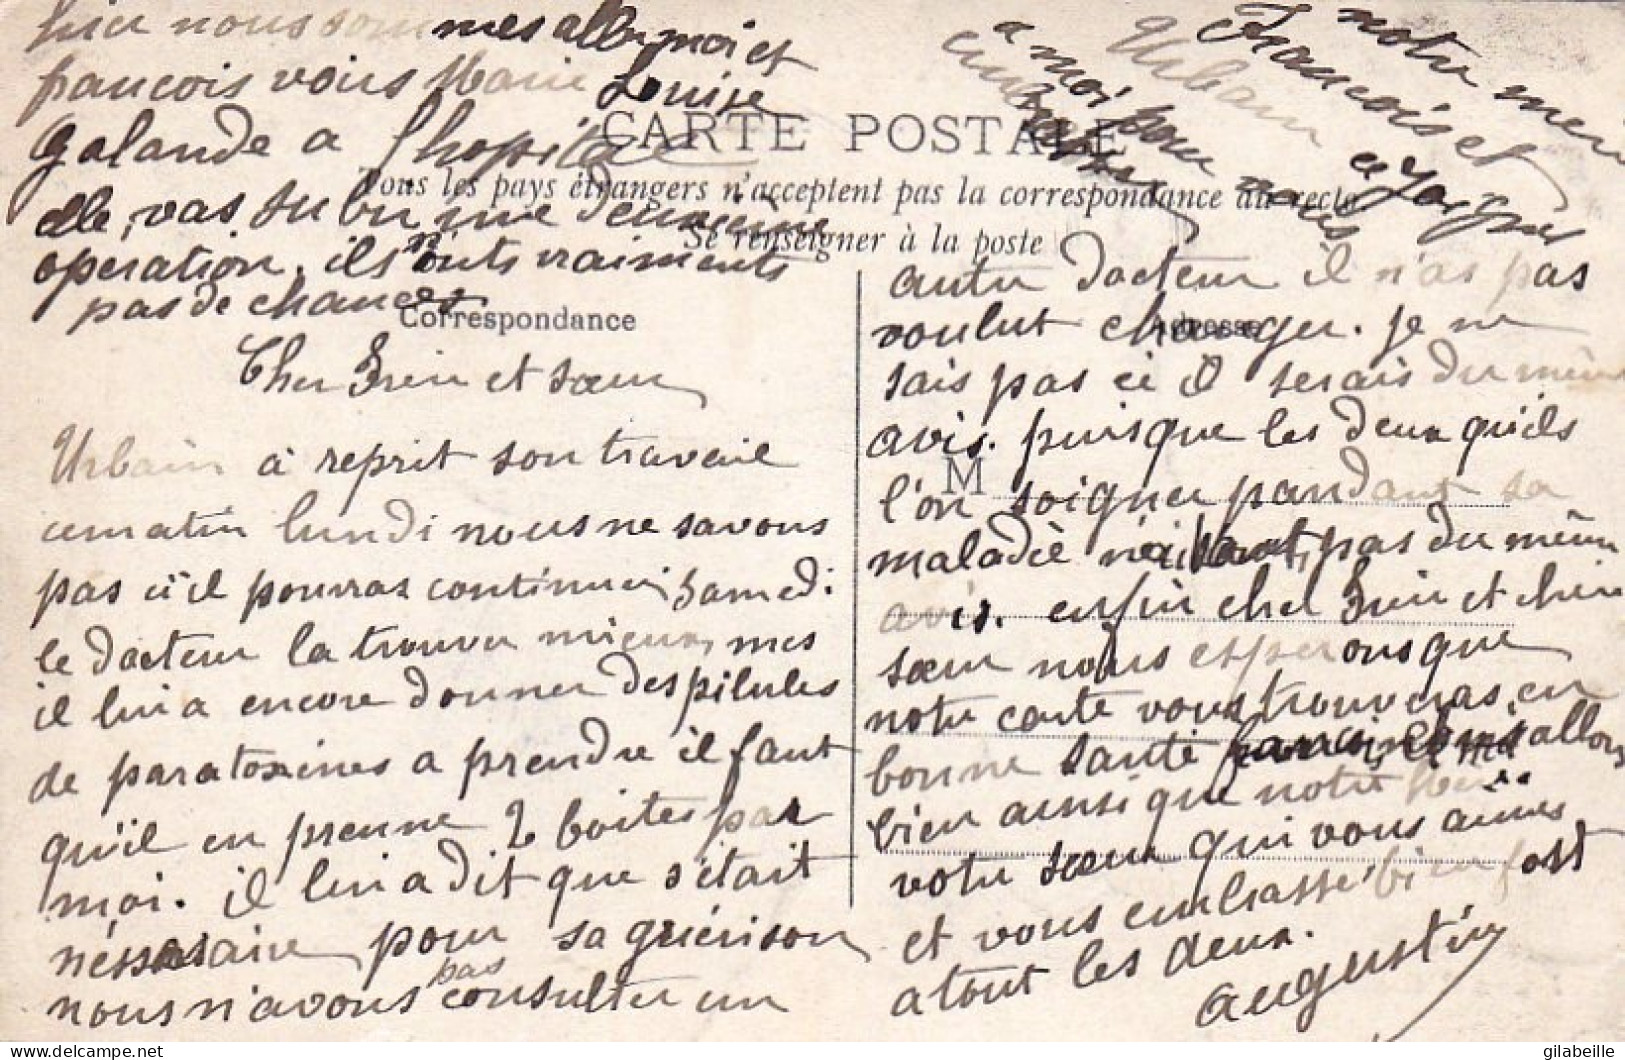 hier nous sommes aller moi et
francois voir Marie Louise
Galande a lhopital
elle vas subir une deuxième
operation. ils n'onts vraiments
pas de chances
CARTE POSTALE
Tous les pays étrangers n'acceptent pas la correspondance au recto
Se renseigner à la poste
Correspondance
Cher Frère et sœur
Urbain à reprit son travail
cematin lundi nous ne savons
pas ci il pourras continuer, samedi
le docteur la trouver mieux, mes
il lui a encore donner des pilules
de paratoxines a prendre il faut
qu'il en prenne 2 boites par
moi. il lui a dit que s'était
néssesaire pour sa guérison
nous n'avons pas consulter un
Adresse
M
autre docteur il n'as pas
voulut changer. je ne
sais pas ci il serais du même
avis. puisque les deux qu'ils
l'on soigner pandant sa
maladie n'étaient pas du même
avis. enfin cher Frère et chère
sœur nous esperons que
notre carte vous trouveras en
bonne santé allons
bien ainsi que notre
votre sœur qui vous aimes
et vous embrasse bien fort
a tout les deux.
augustine
notre mère
François et
Urbain ce joignes
a moi pour nous
embrasser
gilabeille